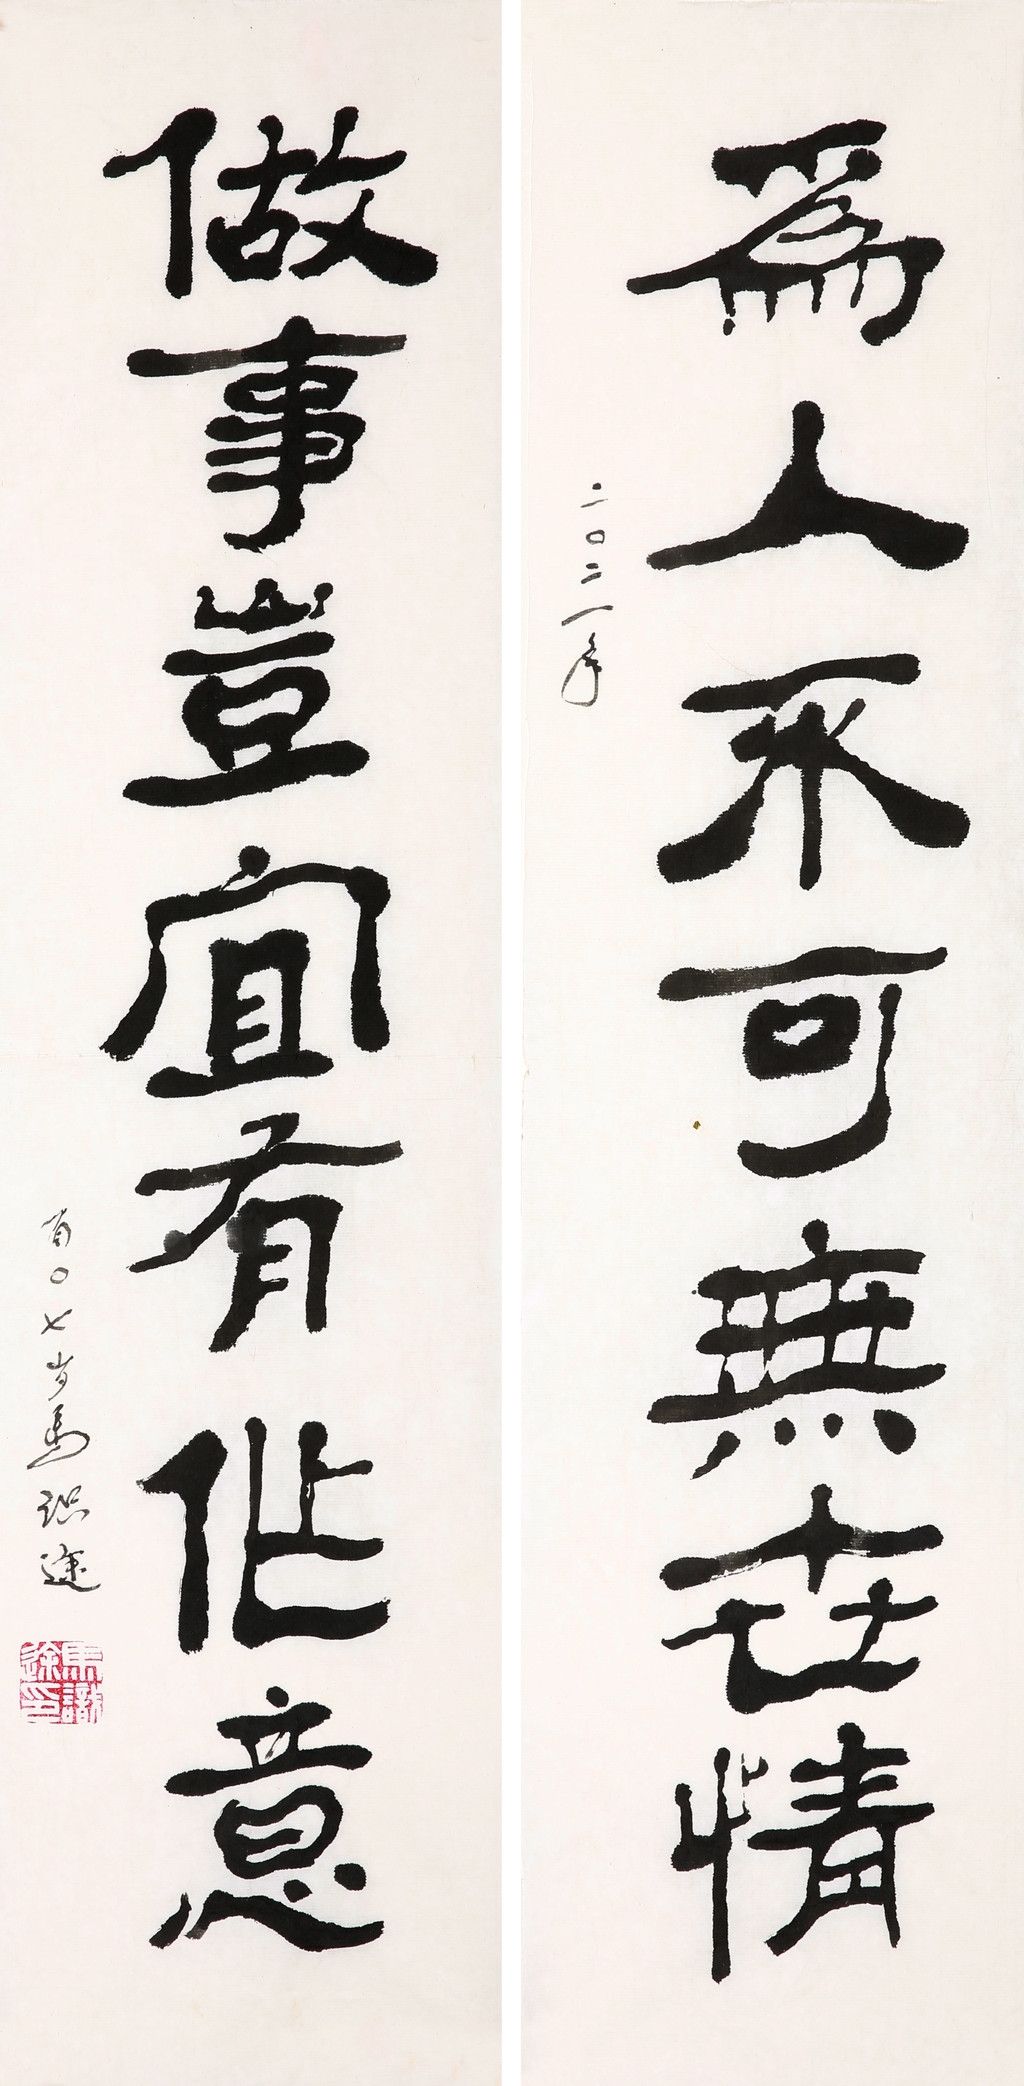 爲人不可無世情
二〇二一年
做事豈宜有作意
百〇七岁馬识途
馬識途印